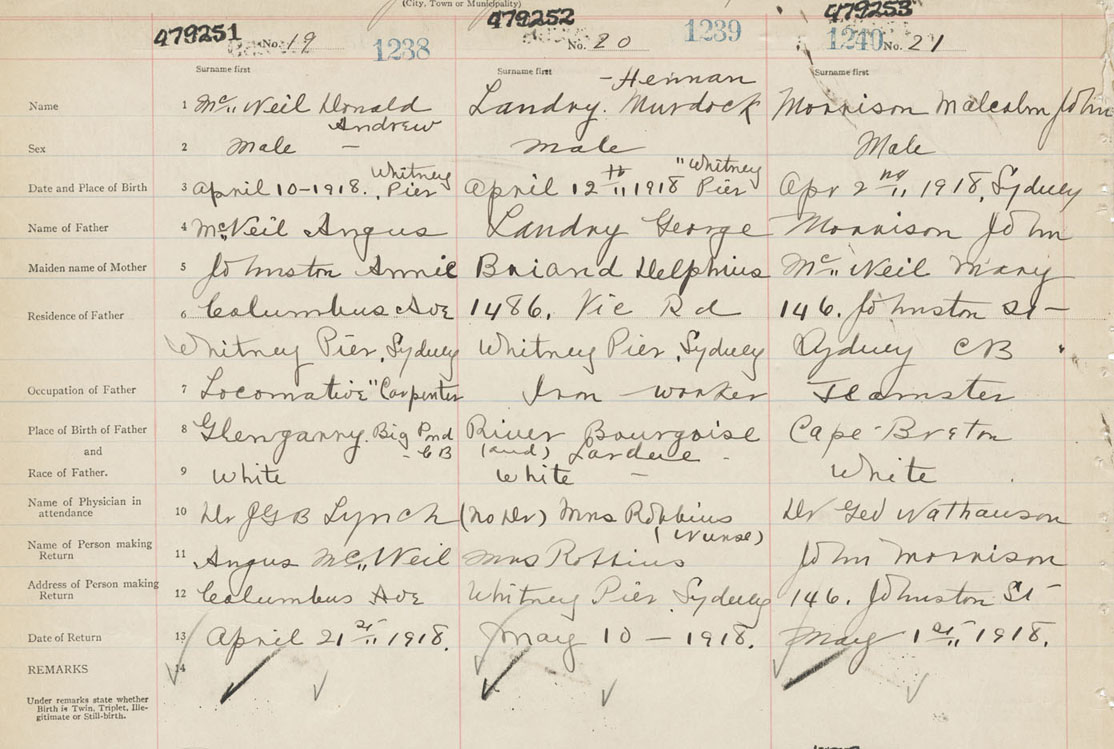 (City, Town or Municipality)
479251 No. 19 1238
479252 No. 20 1239
479253 1240 No. 21
Surname first Surname first Surname first
Name 1 Mc„Neil Donald Andrew
Landry. Murdock - Hennan
Morrison Malcolm John
Sex 2 Male — male Male
Date and Place of Birth 3 April 10-1918. Whitney Pier
April 12th „ 1918 "Whitney Pier
Apr 2nd „ 1918, Sydney
Name of Father 4 Mc„Neil Angus Landry George Morrison John
Maiden name of Mother 5 Johnston Annie Briand Delphius Mc„Neil Mary
Residence of Father 6 Columbus Ave 1486. Vic Rd 146. Johnston St —
Whitney Pier, Sydney Whitney Pier, Sydney Sydney CB
Occupation of Father 7 Locomative" Carpenter Iron - worker Teamster
Place of Birth of Father 8 Glengarry. Big Pnd - CB
River Bourgoise
Cape-Breton
and (and) Lardue -
Race of Father. 9 White White — White
Name of Physician in attendance 10 Dr JGB Lynch (no Dr) Mrs Robbins (Nurse) Dr Geo Nathanson
Name of Person making Return 11 Angus Mc„Neil Mrs Robbins John Morrison
Address of Person making Return 12 Columbus Ave Whitney Pier, Sydney 146. Johnston St
Date of Return 13 April 21st „ 1918. May 10 - 1918. May 1st „ 1918.
REMARKS 14
Under remarks state whether
Birth is Twin, Triplet, Ille-
gitimate or Still-birth.